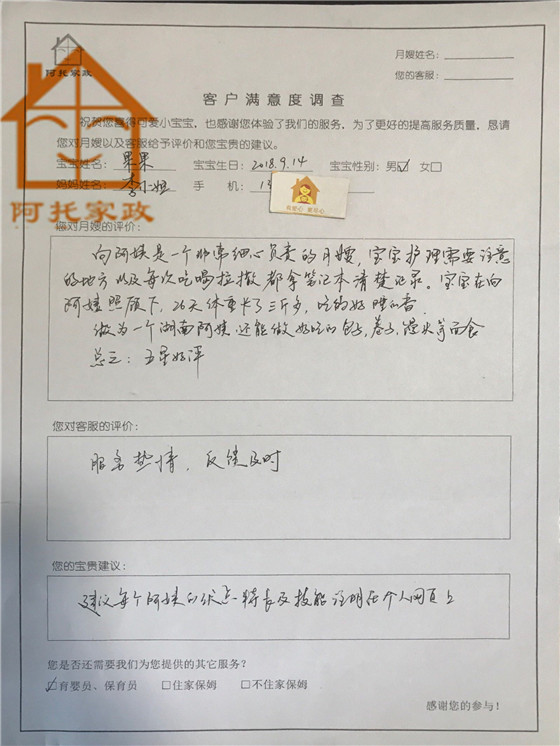 阿托家政
月嫂姓名：
您的客服：
客户满意度调查
祝贺您喜得可爱小宝宝，也感谢您体验了我们的服务，为了更好的提高服务质量，恳请
您对月嫂以及客服给予评价和您宝贵的建议。
宝宝姓名：果果 宝宝生日：2018.9.14 宝宝性别：男☑ 女□
妈妈姓名：李小姐 手 机：1
有爱心 更贴心
阿托家政
您对月嫂的评价：
向阿姨是一个非常细心负责的月嫂，宝宝护理需要注意
的地方以及每次吃喝拉撒都拿笔记本清楚记录。宝宝在向
阿姨照顾下，26天体重长了三斤多，吃的好睡的香。
做为一个湖南阿姨还能做好吃的包子，卷子，馄饨等面食
总之：五星好评
您对客服的评价：
服务热情，反馈及时
您的宝贵建议：
建议每个阿姨的优点特长及技能注明在个人网页上
您是否还需要我们为您提供的其它服务？
☑育婴员、保育员 □住家保姆 □不住家保姆
感谢您的参与！